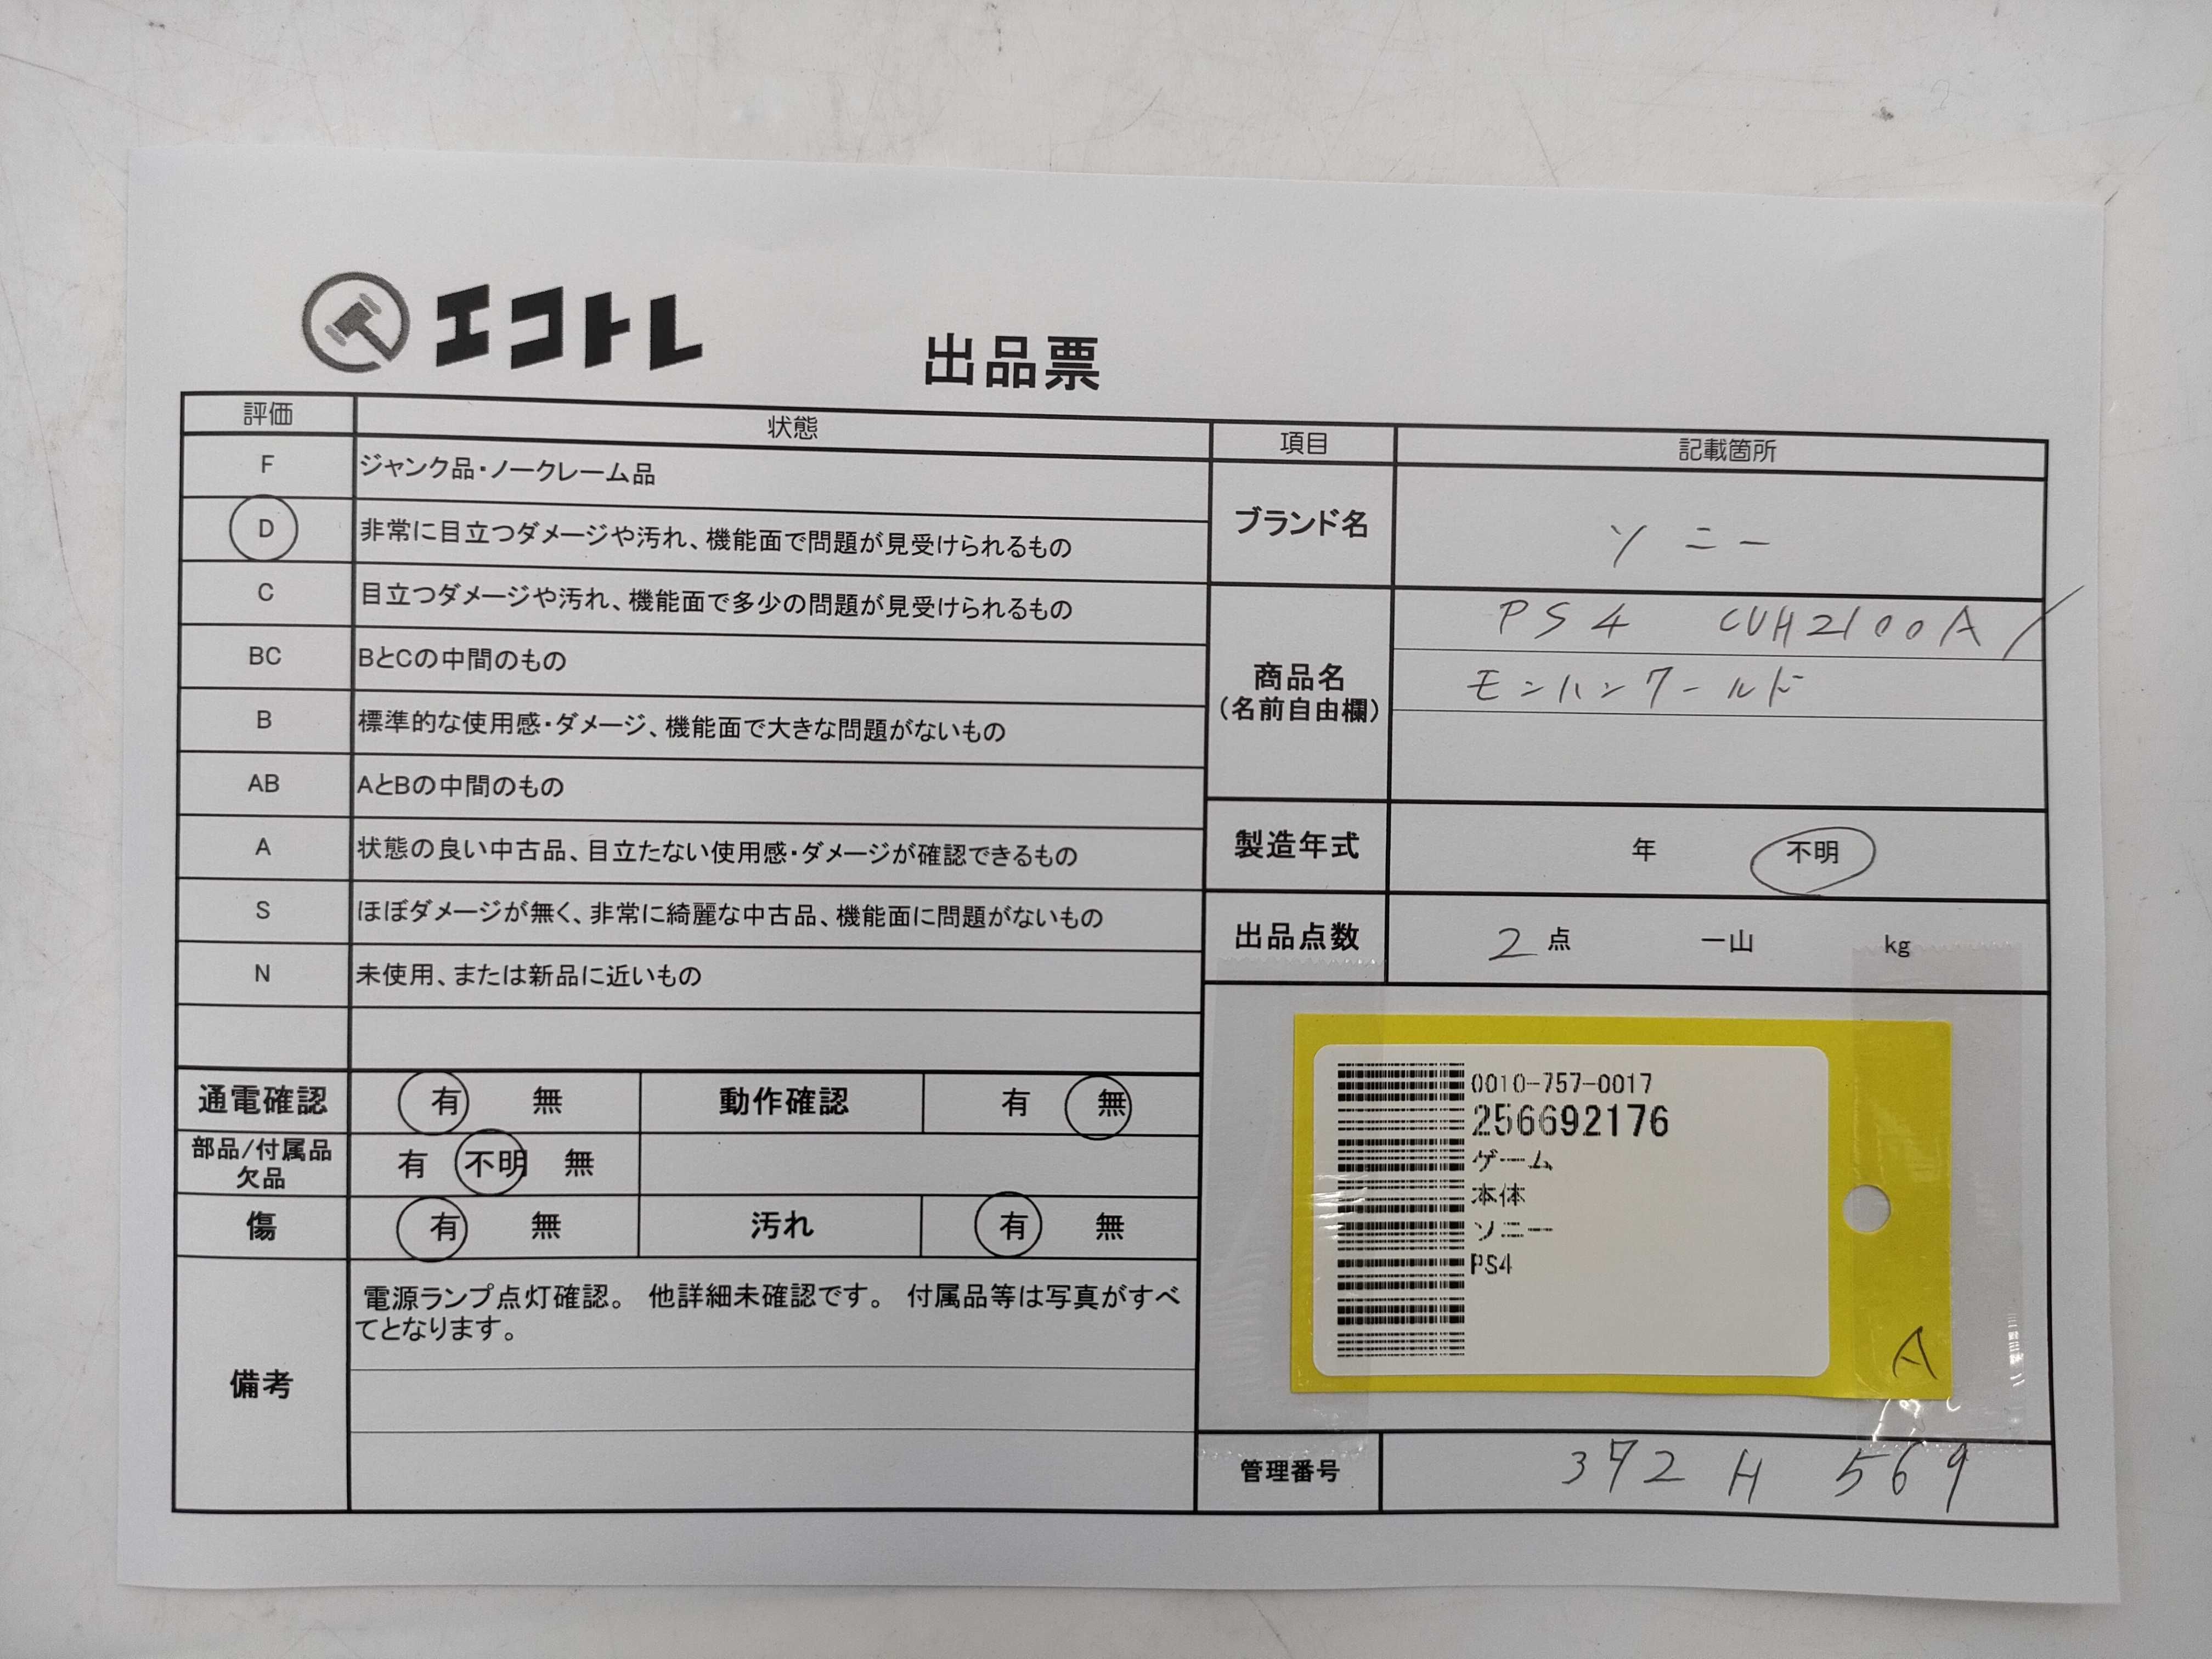 エコトレ
出品票
評価 状態
F ジャンク品・ノークレーム品
D 非常に目立つダメージや汚れ、機能面で問題が見受けられるもの
C 目立つダメージや汚れ、機能面で多少の問題が見受けられるもの
BC BとCの中間のもの
B 標準的な使用感・ダメージ、機能面で大きな問題がないもの
AB AとBの中間のもの
A 状態の良い中古品、目立たない使用感・ダメージが確認できるもの
S ほぼダメージが無く、非常に綺麗な中古品、機能面に問題がないもの
N 未使用、または新品に近いもの
通電確認 有 無 動作確認 有 無
部品/付属品
欠品
有 不明 無
傷 有 無 汚れ 有 無
備考
電源ランプ点灯確認。 他詳細未確認です。 付属品等は写真がすべ
てとなります。
項目 記載箇所
ブランド名 ソニー
商品名
(名前自由欄)
PS4 CUH2100A/
モンハンワールド
製造年式 年 不明
出品点数 2 点 一山 kg
0010-757-0017
256692176
ゲーム
本体
ソニー
PS4
A
管理番号 372 H 569